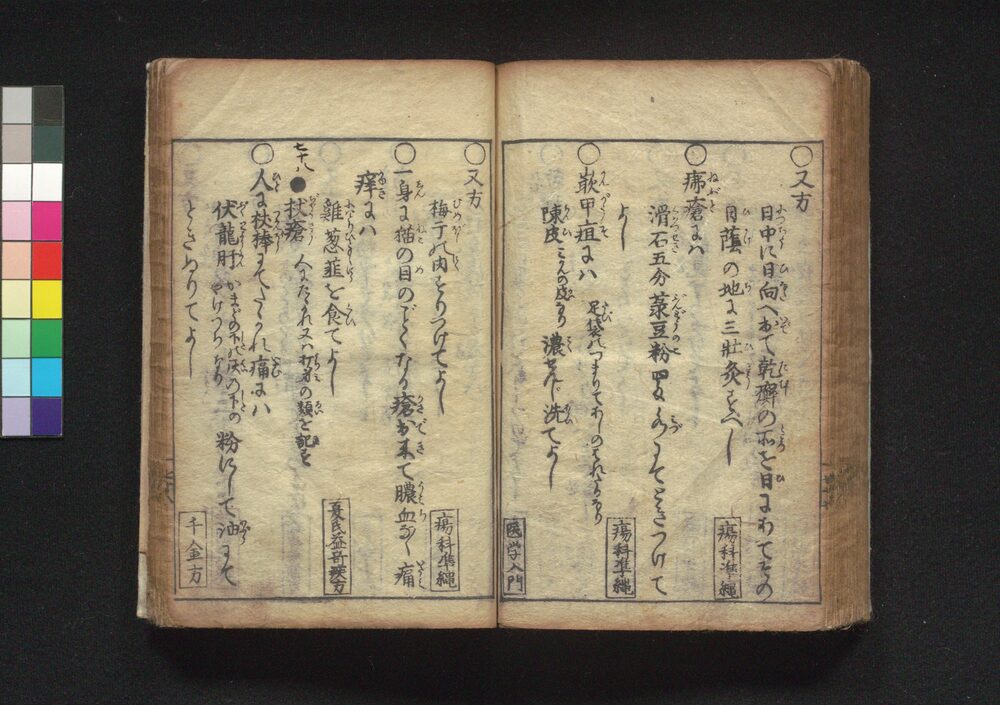 〇又方
日中に日向へ出て乾癬の所を日にあてその
日蔭の地に三壮灸すべし
瘍科準縄
〇疿瘡には
滑石五分菉豆粉四匁水にてときつけて
よし
瘍科準縄
〇嵌甲疽には
足袋のつまりてあしのはれたるなり
陳皮
こみかんの皮なり
濃せんじ洗てよし
医学入門
〇又方
梅干の肉をとりつけてよし
瘍科準縄
〇一身に猫の目のごとくなり瘡出来て膿血なく痛
痒には
雞葱韮を食てよし
夏氏益奇疾方
七十八
●杖瘡
人にたたかれ又は打身の類を記す
〇人に杖棒にてたたかれ痛には
伏龍肝
かまどの下の灰の下の
やけつちなり
粉にして油にて
ときぬりてよし
千金方